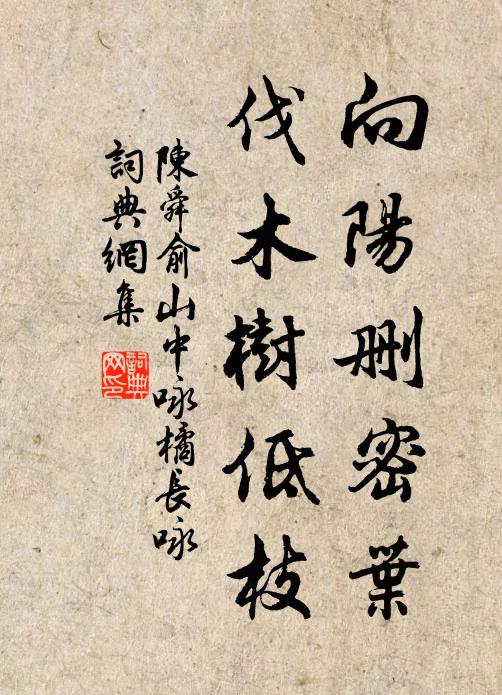 向陽刪密葉
伐木樹低枝
陳舜俞山中咏橘長咏
詞典網集
詞典
网印